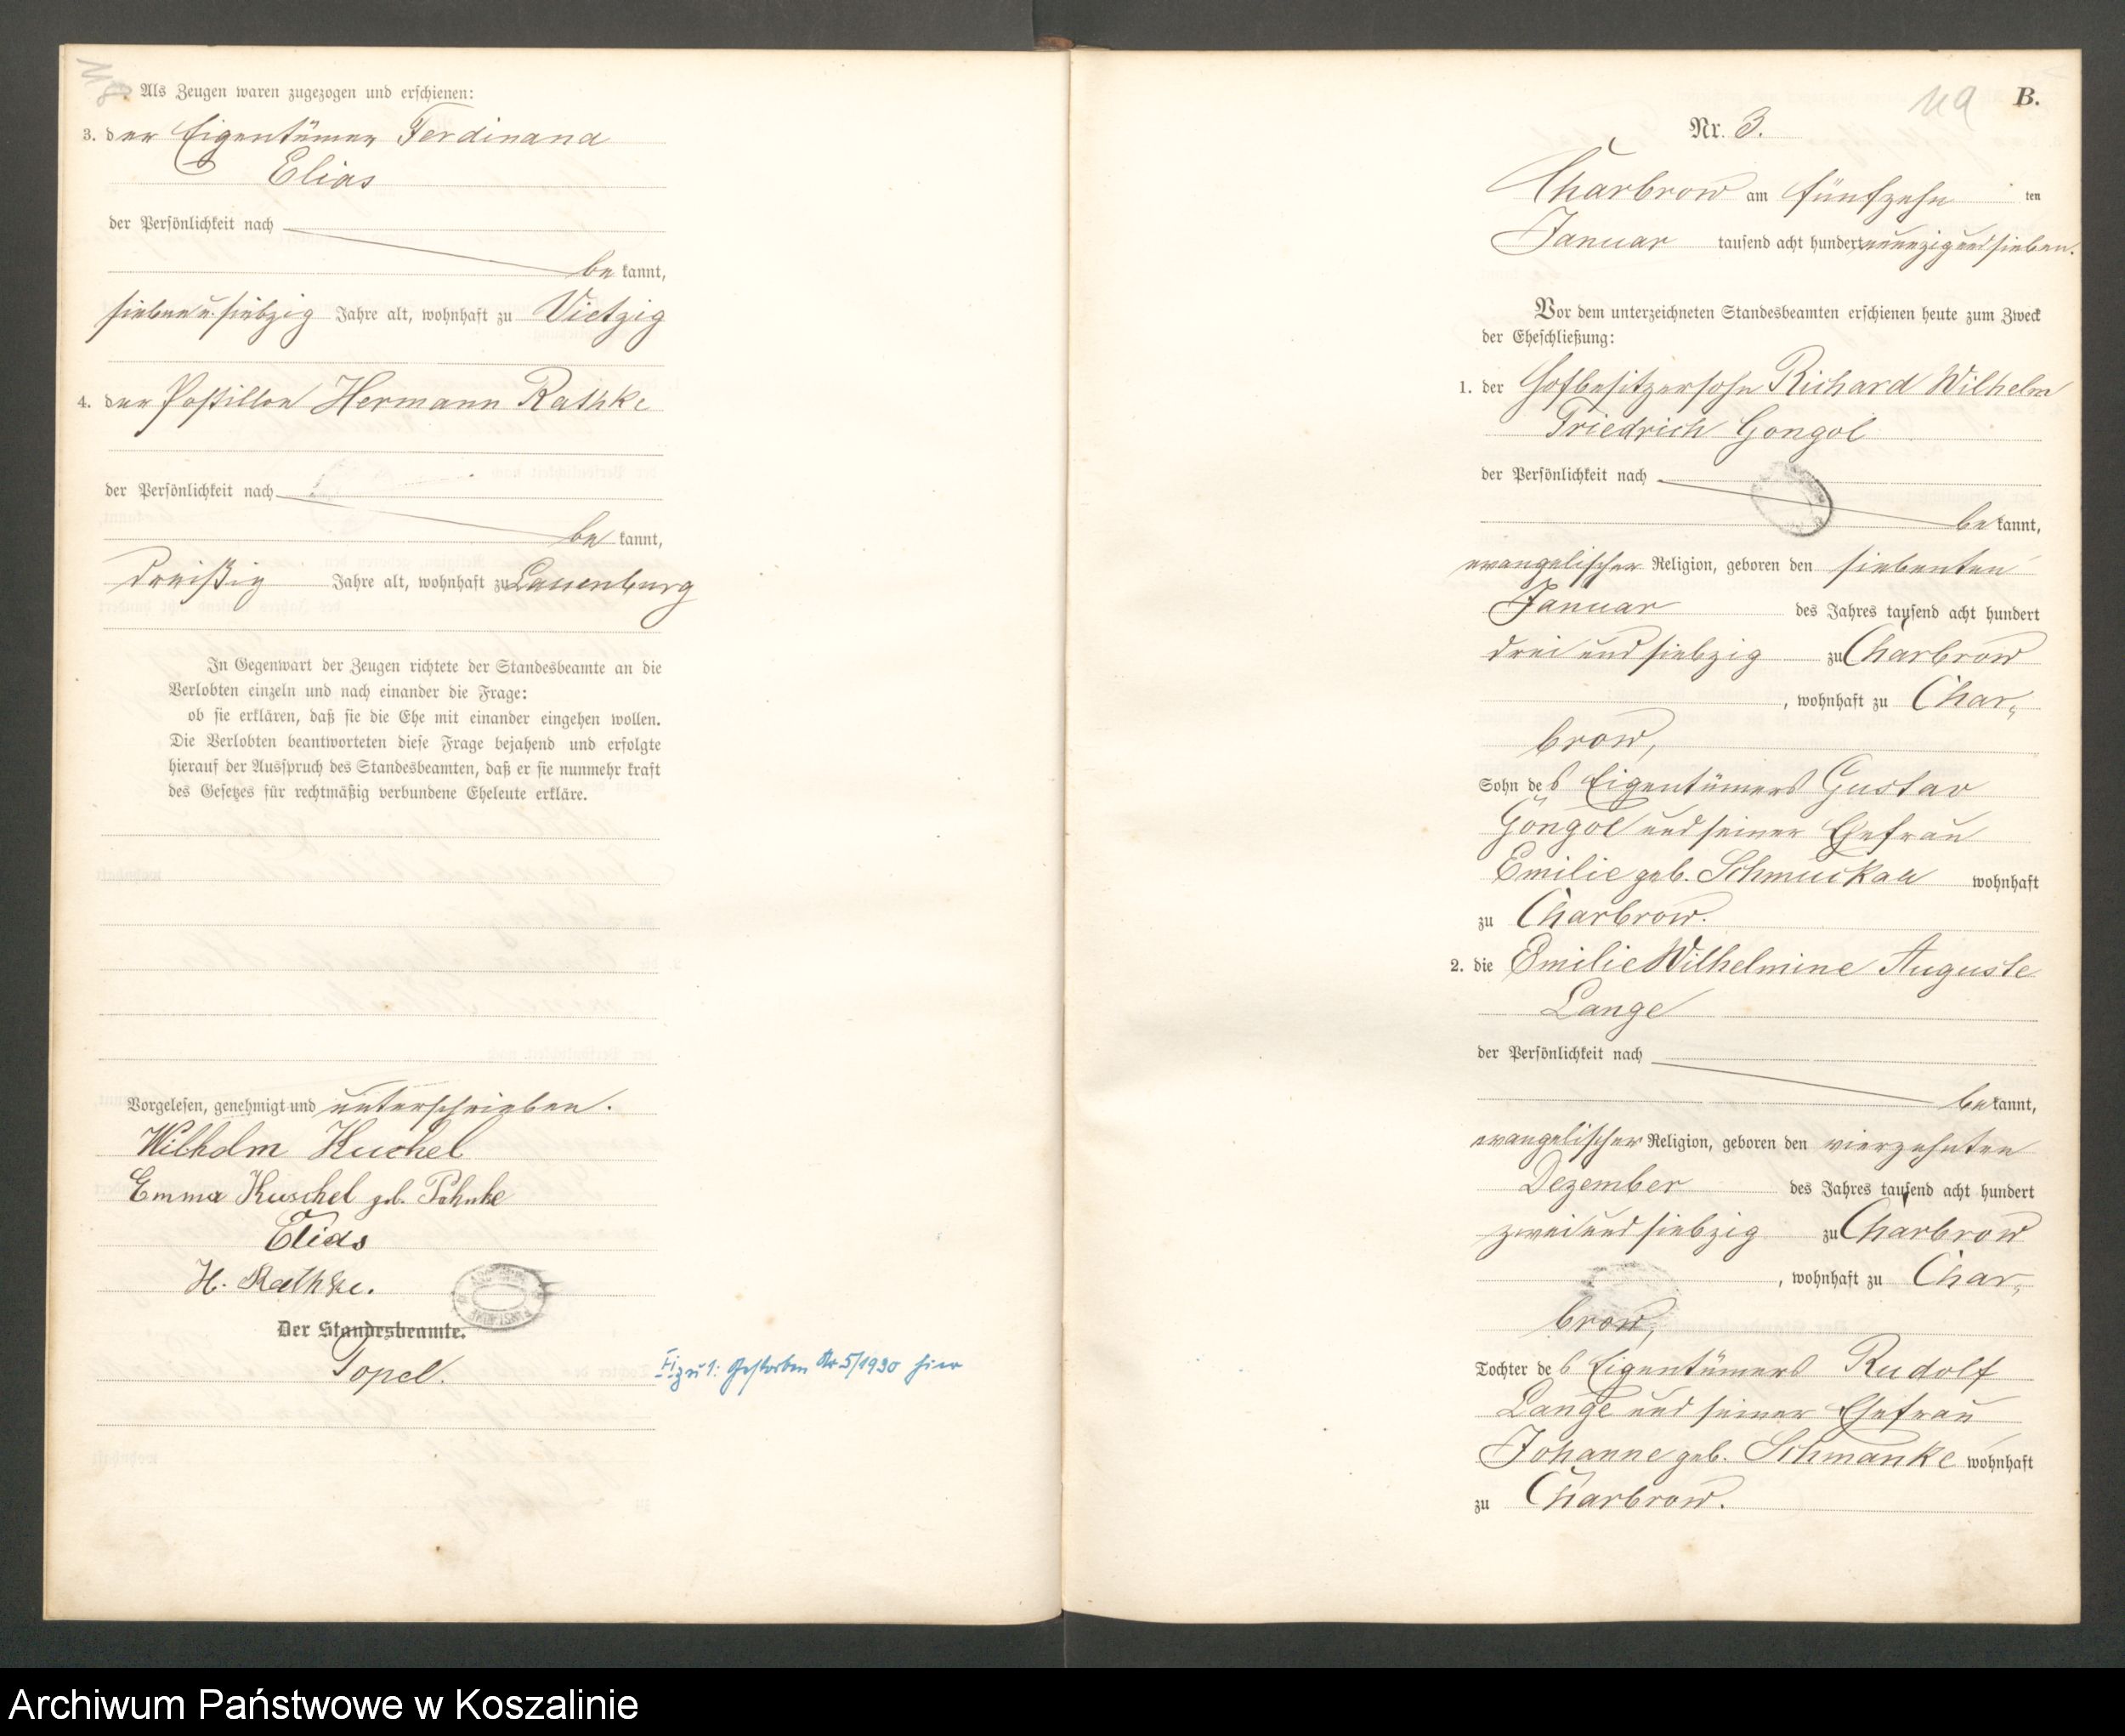 Als Zeugen waren zugezogen und erschienen:
3. der Eigentümer Ferdinand
Elias
der Persönlichkeit nach
be kannt,
sieben u. siebzig Jahre alt, wohnhaft zu Vietzig
4. der Postillon Hermann Rathke
der Persönlichkeit nach
be kannt,
dreißig Jahre alt, wohnhaft zu Lauenburg
In Gegenwart der Zeugen richtete der Standesbeamte an die
Verlobten einzeln und nach einander die Frage:
ob sie erklären, daß sie die Ehe mit einander eingehen wollen.
Die Verlobten beantworteten diese Frage bejahend und erfolgte
hierauf der Ausspruch des Standesbeamten, daß er sie nunmehr kraft
des Gesetzes für rechtmäßig verbundene Eheleute erkläre.
Vorgelesen, genehmigt und unterschrieben.
Wilhelm Kuschel
Emma Kuschel geb. Pahnke
Elias
H. Rathke.
Der Standesbeamte.
Topel.
zu 1: Gestorben Nr 5/1930 hier
119 B.
Nr. 3.
Charbrow am fünfzehn ten
Januar tausend acht hundert neunzig und sieben.
Vor dem unterzeichneten Standesbeamten erschienen heute zum Zweck
der Eheschließung:
1. der Hofbesitzersohn Richard Wilhelm
Friedrich Gongol
der Persönlichkeit nach
be kannt,
evangelischer Religion, geboren den siebenten
Januar des Jahres tausend acht hundert
drei und siebzig zu Charbrow
, wohnhaft zu Char-
brow,
Sohn des Eigentümers Gustav
Gongol und seiner Ehefrau
Emilie geb. Schmuckau wohnhaft
zu Charbrow.
2. die Emilie Wilhelmine Auguste
Lange
der Persönlichkeit nach
be kannt,
evangelischer Religion, geboren den vierzehnten
Dezember des Jahres tausend acht hundert
zwei und siebzig zu Charbrow
, wohnhaft zu Char-
brow,
Tochter des Eigentümers Rudolf
Lange und seiner Ehefrau
Johanne geb. Schmanke wohnhaft
zu Charbrow.
Archiwum Państwowe w Koszalinie